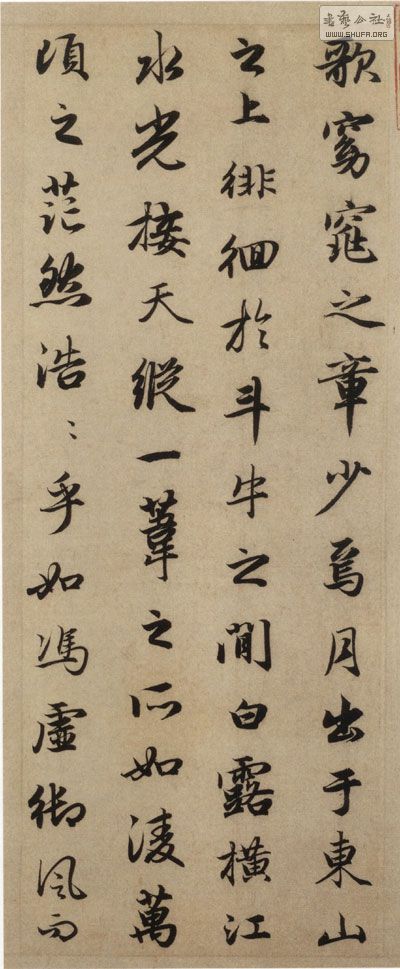 歌窈窕之章少焉月出于東山
之上徘徊於斗牛之間白露橫江
水光接天縱一葦之所如淩萬
頃之茫然浩〻乎如馮虛御風而
書藝公社
WWW.SHUFA.ORG